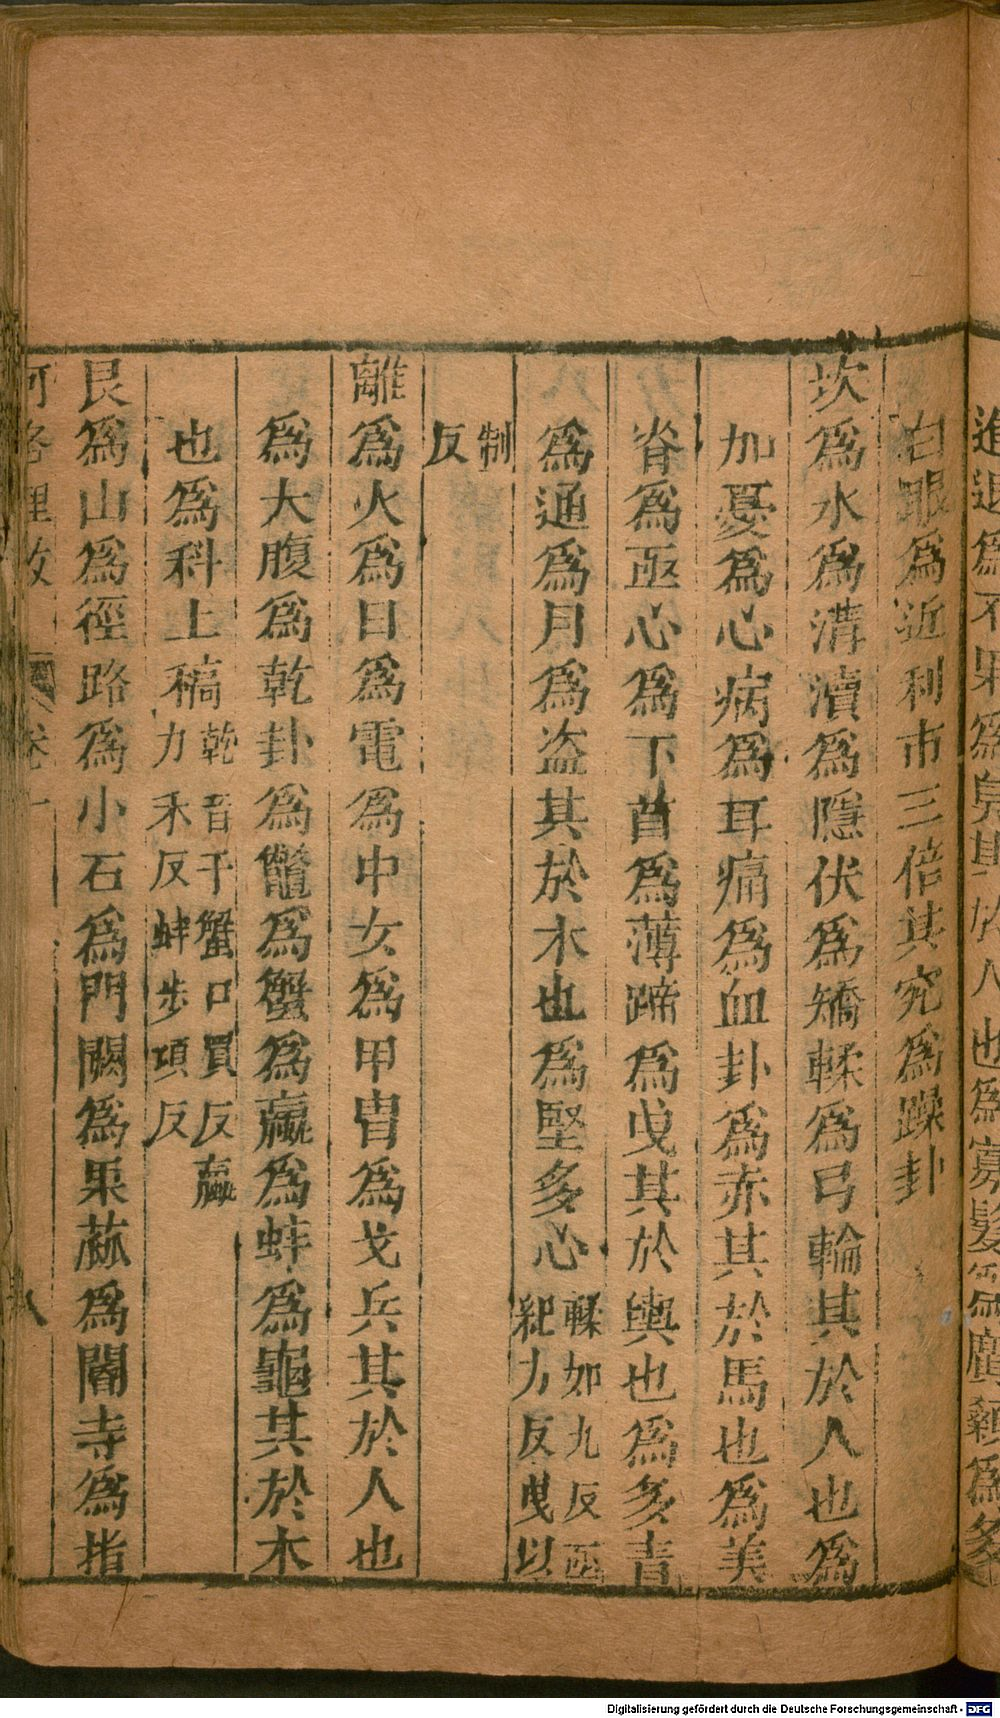 進退爲不果爲臭其於人也爲寡髮爲廣顙爲多
白眼爲近利市三倍其究爲躁卦
坎爲水爲溝瀆爲隱伏爲矯輮爲弓輪其於人也爲
加憂爲心病爲耳痛爲血卦爲赤其於馬也爲美
脊爲亟心爲下首爲薄蹄爲曳其於輿也爲多眚
爲通爲月爲盜其於木也爲堅多心輮如九反亟紀力反曳以
制反
離爲火爲日爲電爲中女爲甲冑爲戈兵其於人也
爲大腹爲乾卦爲鱉爲蟹爲蠃爲蚌爲龜其於木
也爲科上稿乾音干蟹口買反蠃力禾反蚌步項反
艮爲山爲徑路爲小石爲門闕爲果蓏爲閽寺爲指
河洛理數 卷一 八
Digitalisierung gefördert durch die Deutsche Forschungsgemeinschaft - DFG